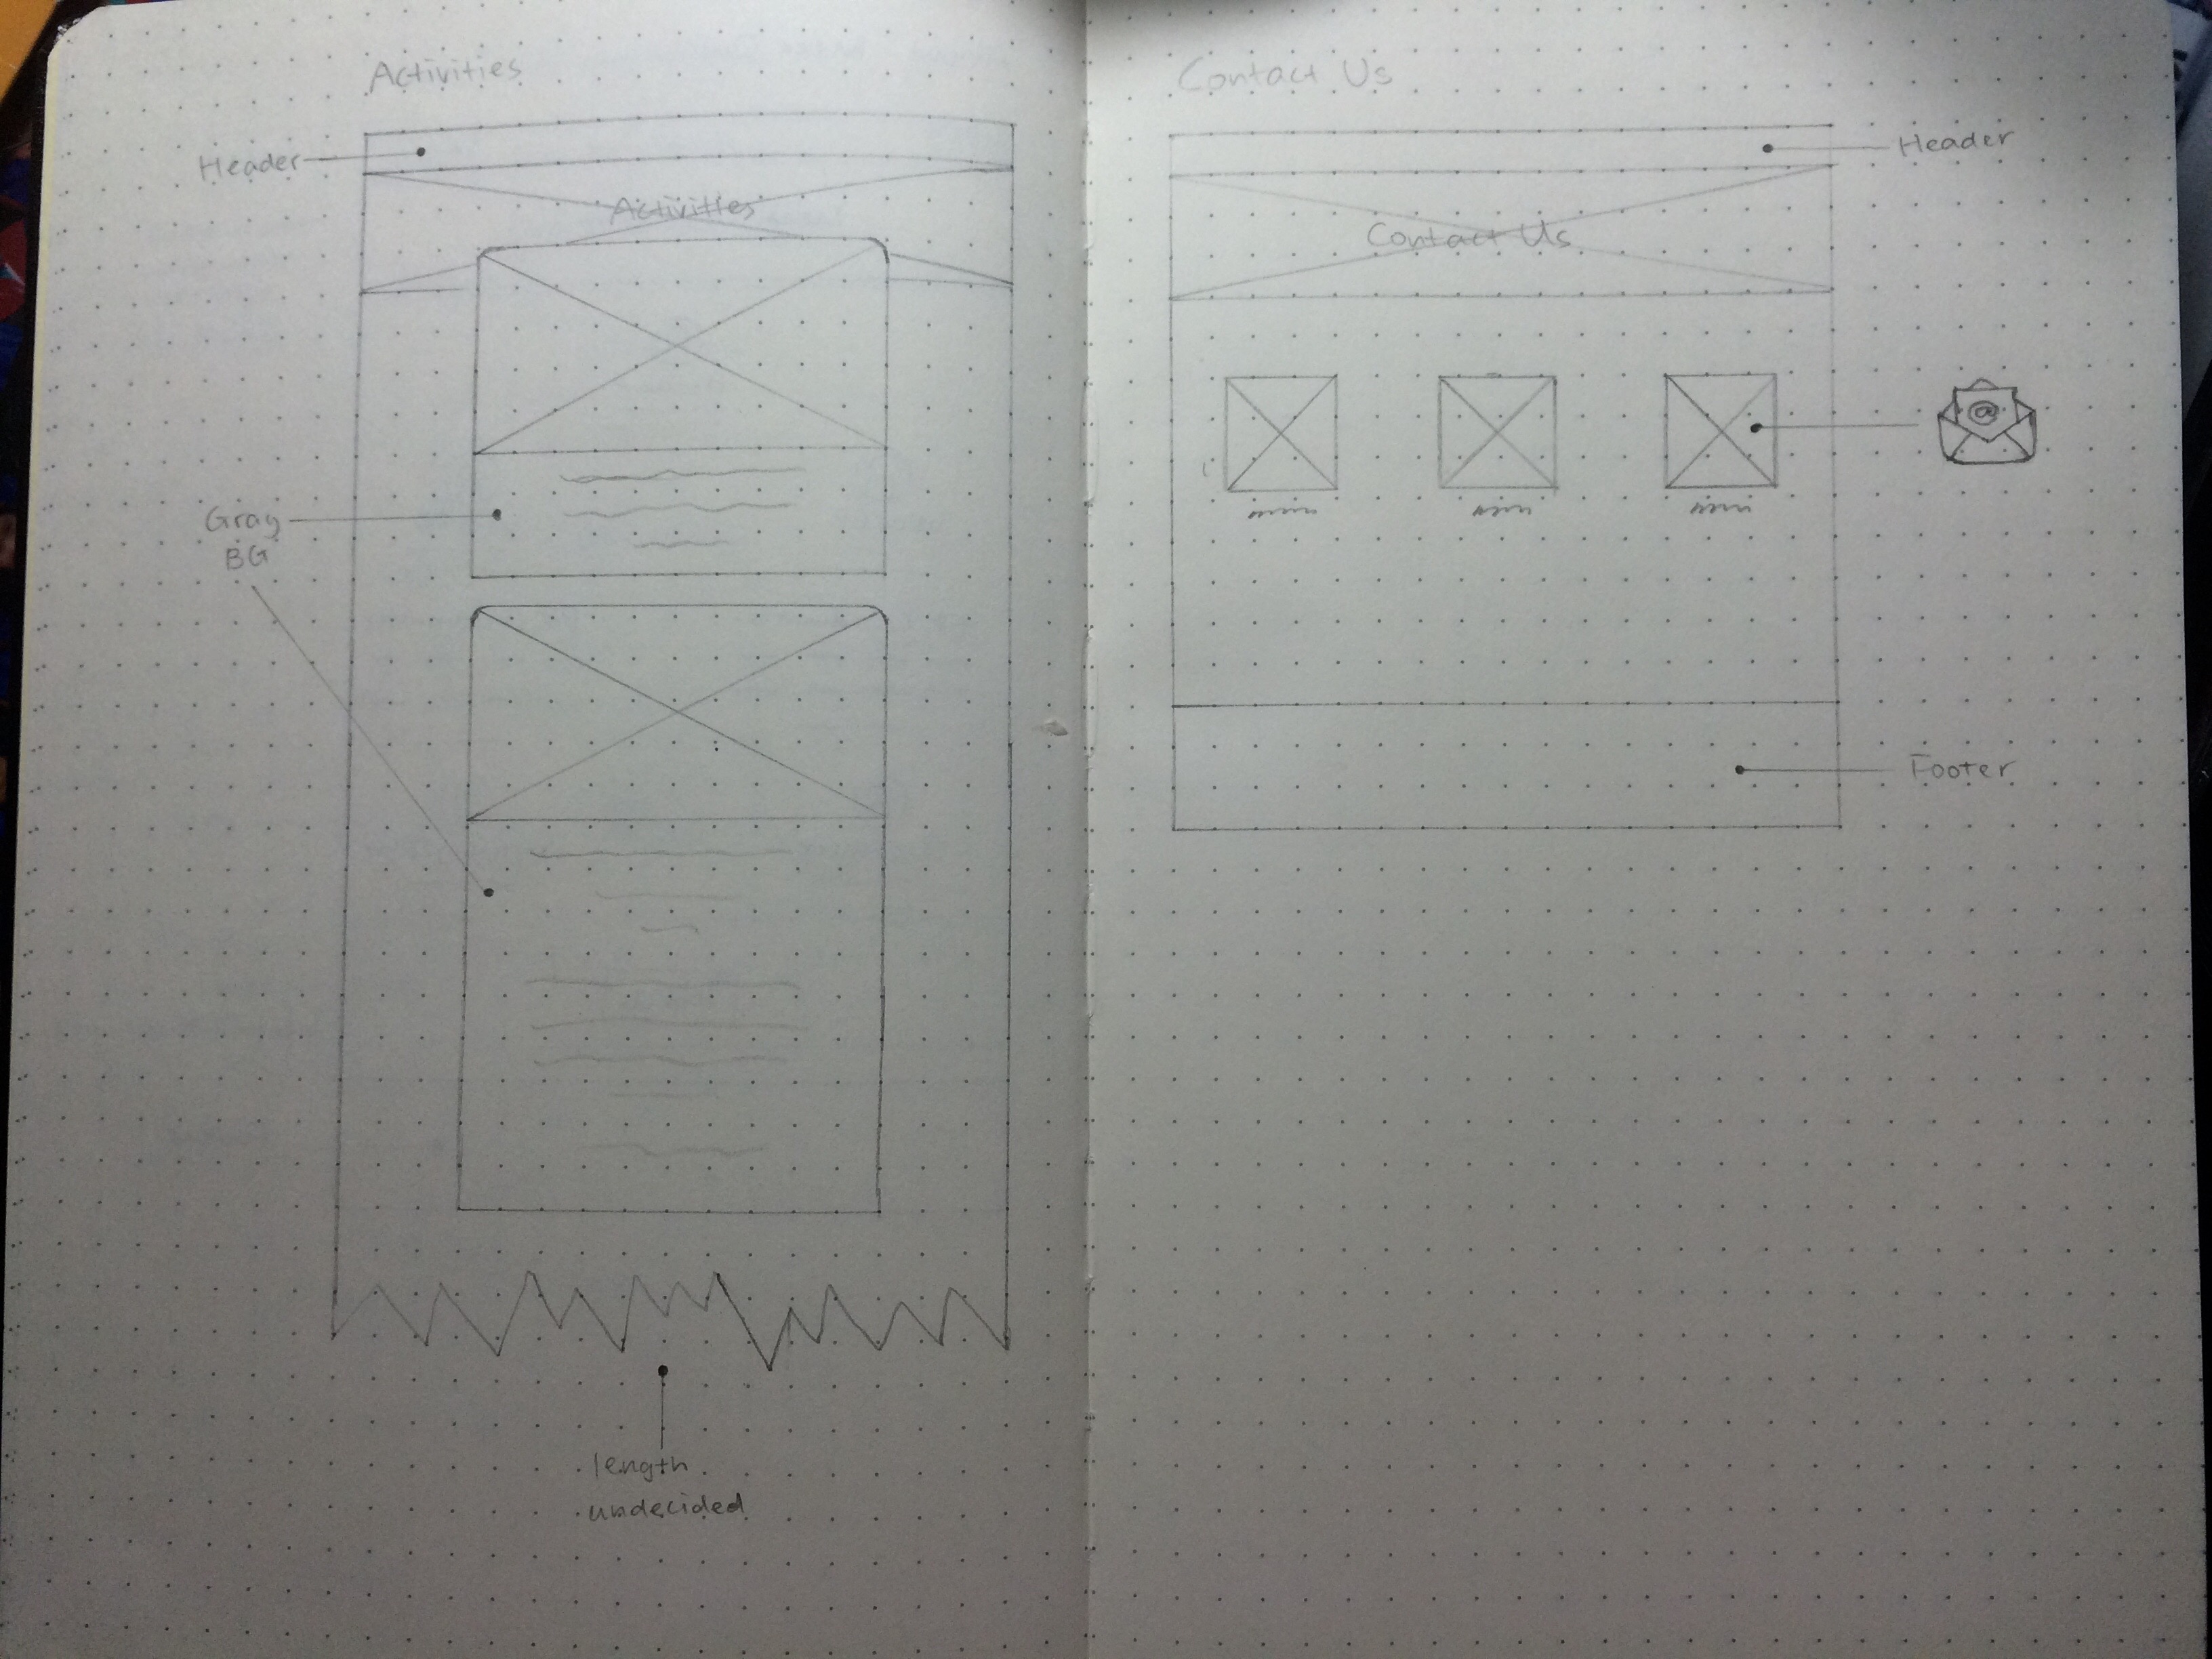 Activities
Header
Activities
Gray
BG
length
undecided
Contact Us
Header
Contact Us
@
Footer